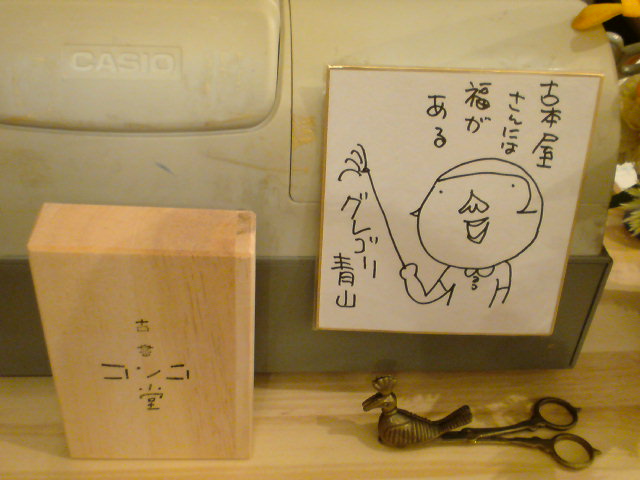 CASIO
古本屋
さんには
福が
ある
グレゴリ
青山
古書
コショコ
堂